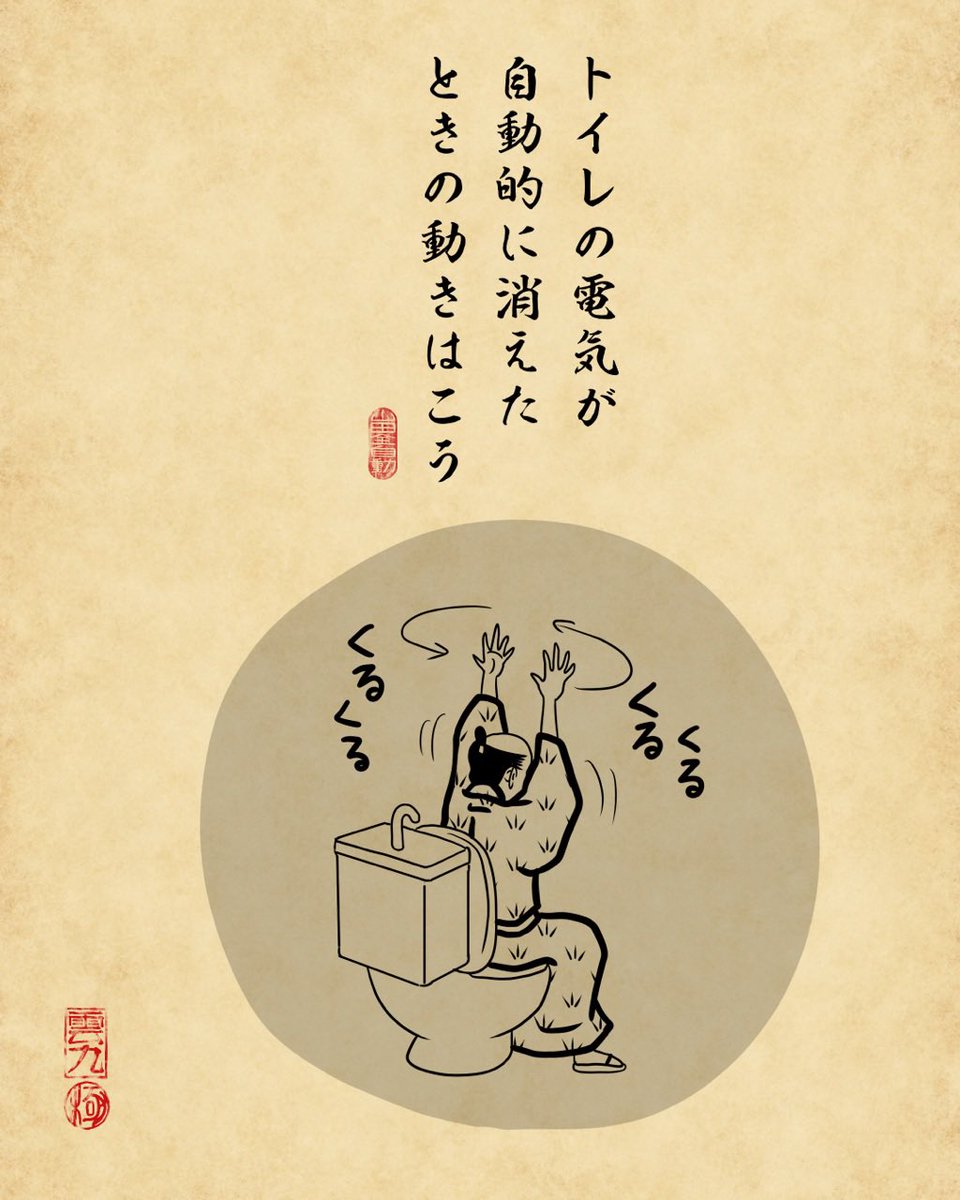 トイレの電気が
自動的に消えた
ときの動きはこう
くる
くる
くる
くる